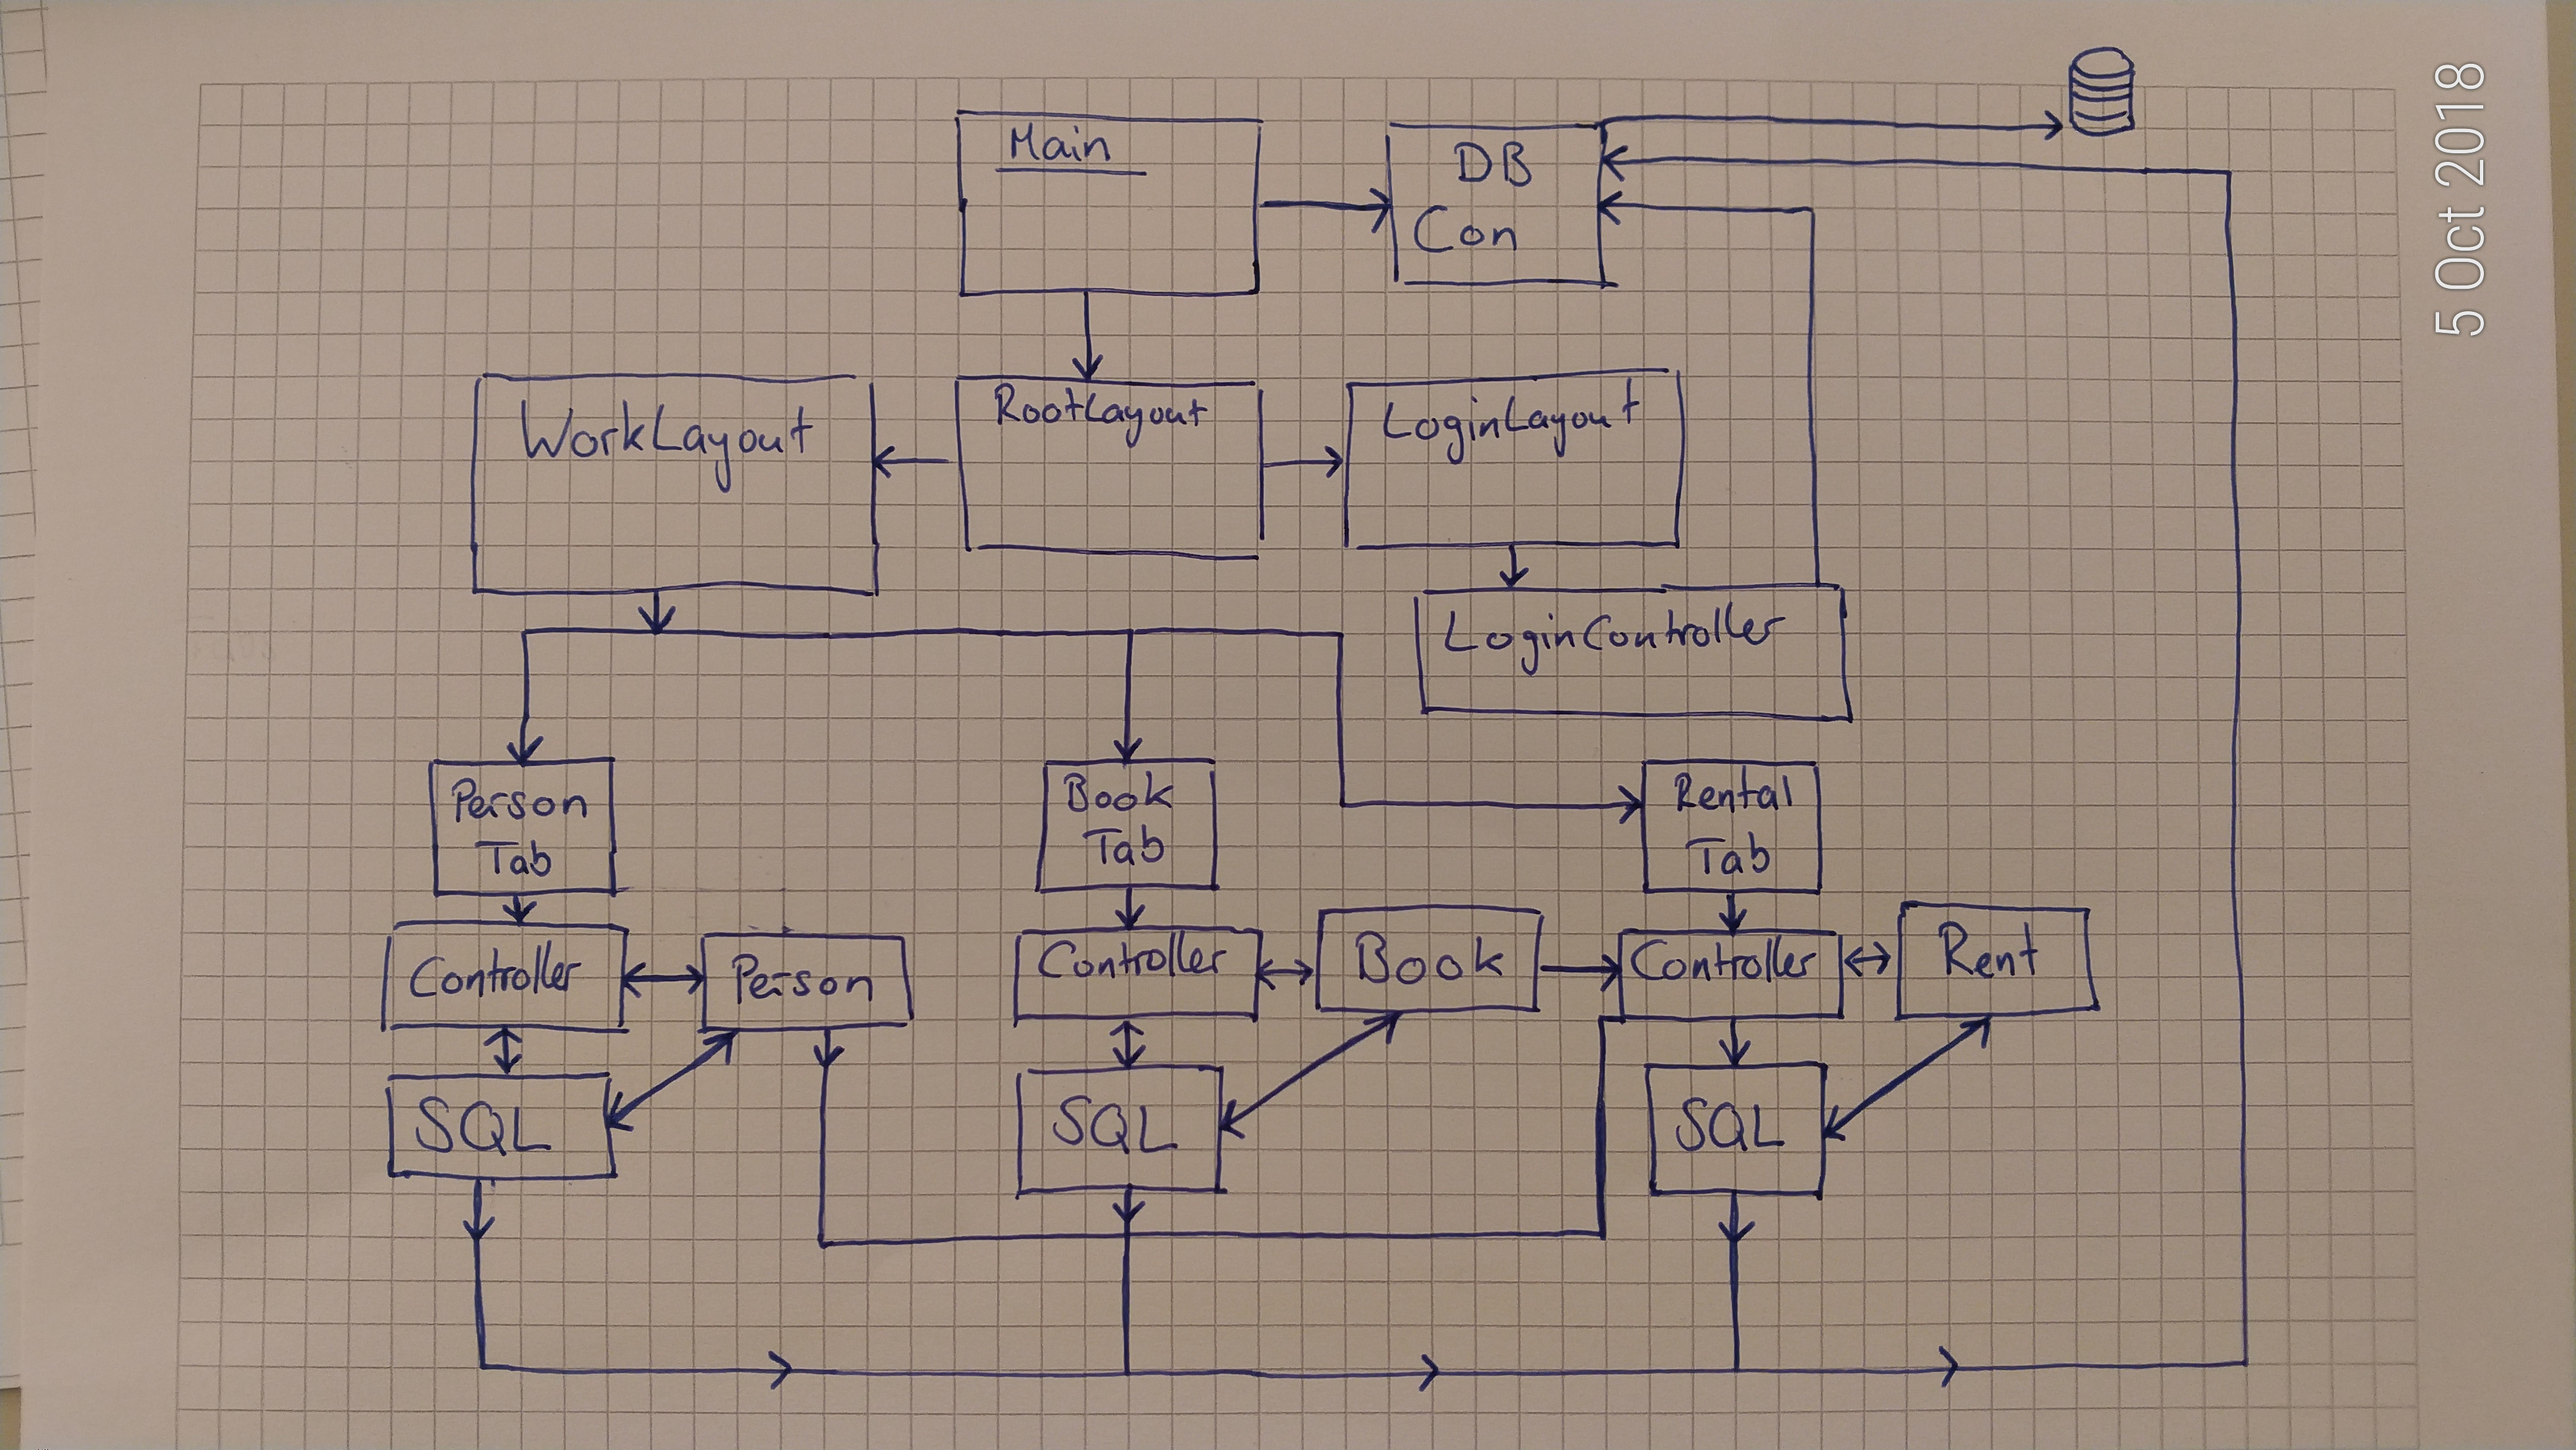 Main
DB
Con
5 Oct 2018
WorkLayout
RootLayout
LoginLayout
LoginController
Person
Tab
Book
Tab
Rental
Tab
Controller
Person
Controller
Book
Controller
Rent
SQL
SQL
SQL